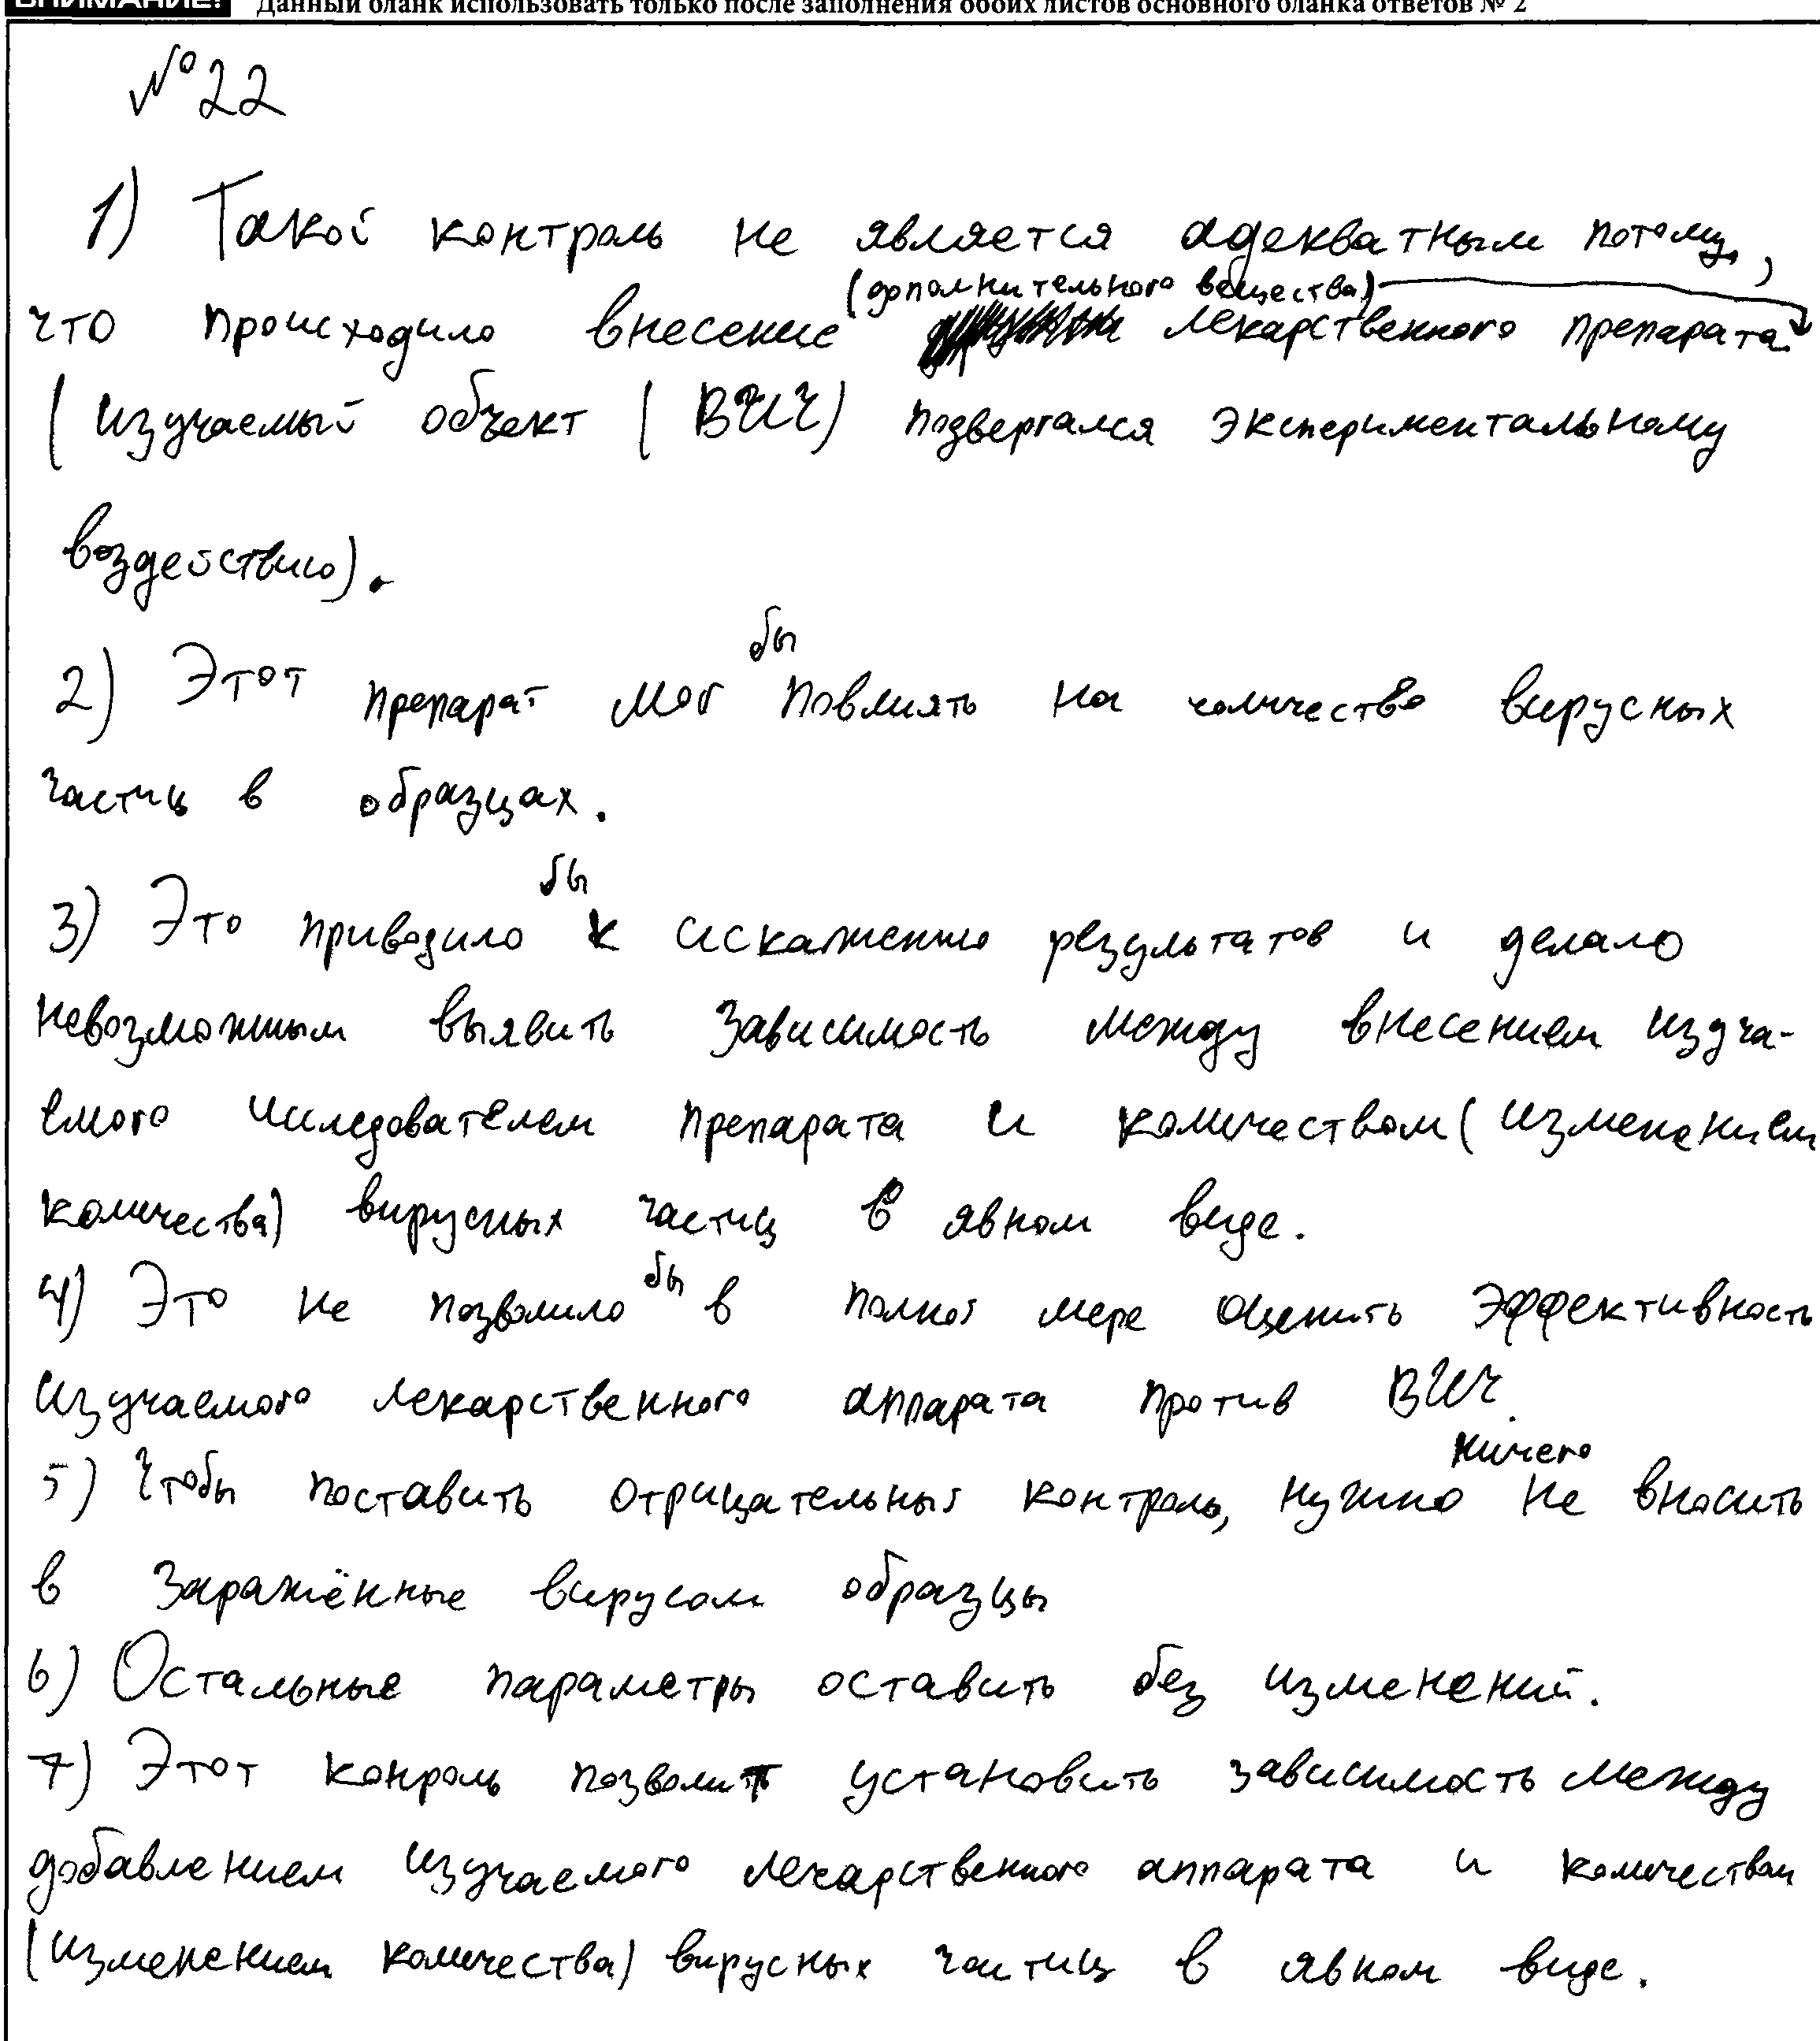 ВНИМАНИЕ! Данный бланк использовать только после заполнения обоих листов основного бланка ответов № 2
№ 22
1) Такой контроль не является адекватным потому,
(дополнительного вещества)
что происходило внесение лекарственного препарата
(изучаемый объект (ВИЧ) подвергался экспериментальному
воздействию).
2) Этот препарат мог бы повлиять на количество вирусных
частиц в образцах.
3) Это приводило бы к искажению результатов и делало
невозможным выявить зависимость между внесением изуча-
емого исследователем препарата и количеством (изменением
количества) вирусных частиц в явном виде.
4) Это не позволило бы в полной мере оценить эффективность
изучаемого лекарственного аппарата против ВИЧ.
5) Чтобы поставить отрицательный контроль, нужно ничего не вносить
в заражённые вирусом образцы
6) Остальные параметры оставить без изменений.
7) Этот конроль позволит установить зависимость между
добавлением изучаемого лекарственного аппарата и количеством
(изменением количества) вирусных частиц в явном виде.